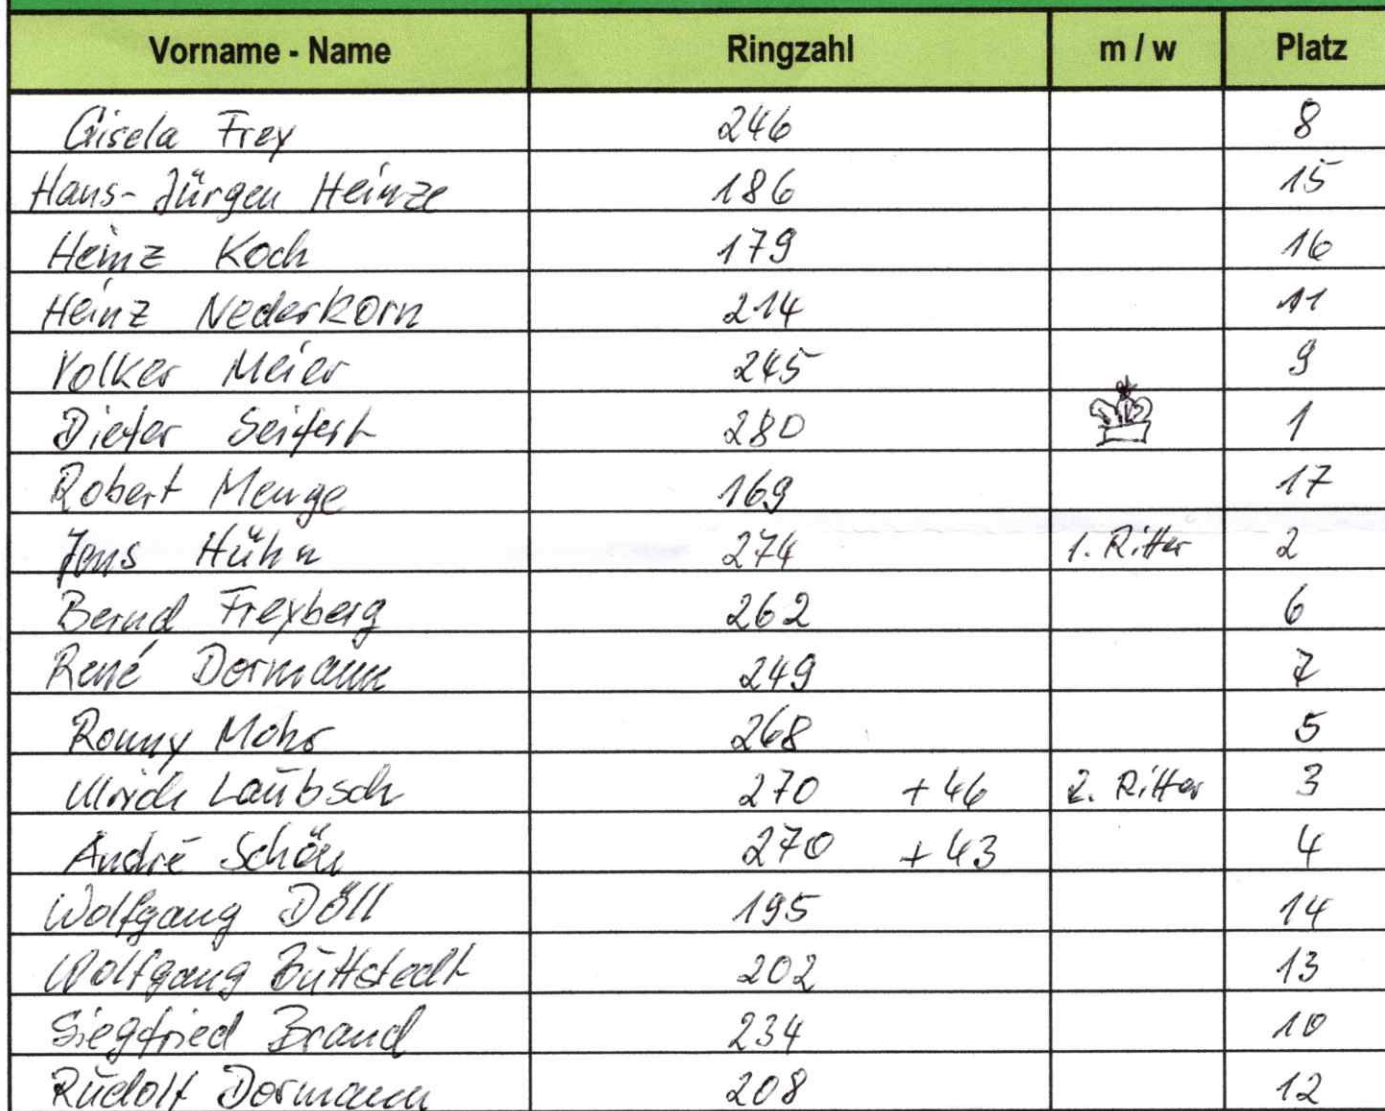 Vorname - Name Ringzahl m / w Platz
Gisela Frey 246 8
Hans-Jürgen Heinze 186 15
Heinz Koch 179 16
Heinz Nederkorn 214 11
Volker Meier 245 9
Dieter Seifert 280 1
Robert Menge 169 17
Jens Hühn 274 1. Ritter 2
Bernd Freyberg 262 6
René Dormann 249 7
Ronny Mohr 268 5
Ulrich Laubsch 270 +46 2. Ritter 3
André Schön 270 +43 4
Wolfgang Döll 195 14
Wolfgang Buttstedt 202 13
Siegfried Brand 234 10
Rudolf Dormann 208 12